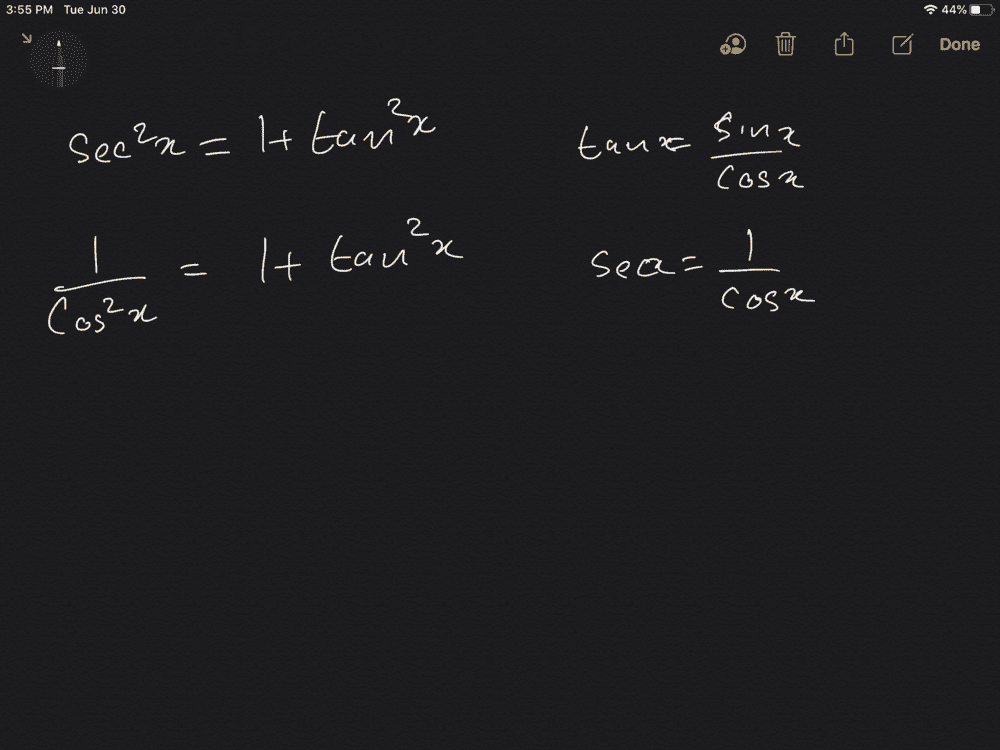 3:55 PM Tue Jun 30
44%
Done
sec²x = 1 + tan²x
tanx = sinx / cosx
1 / cos²x = 1 + tan²x
secx = 1 / cosx